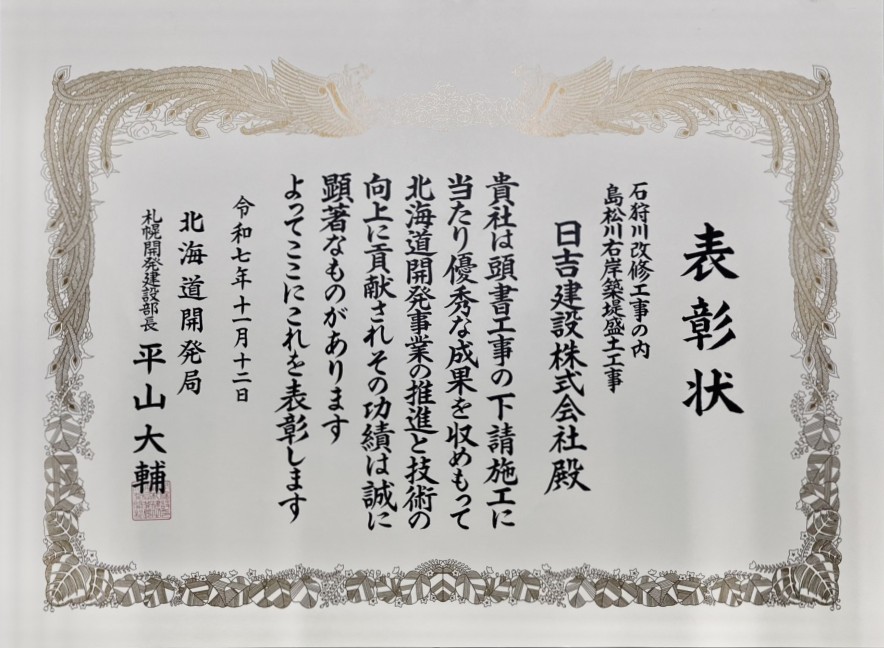 表彰状
石狩川改修工事の内
島松川右岸築堤盛土工事
日吉建設株式会社殿
貴社は頭書工事の下請施工に
当たり優秀な成果を収めもって
北海道開発事業の推進と技術の
向上に貢献されその功績は誠に
顕著なものがあります
よってここにこれを表彰します
令和七年十一月十二日
北海道開発局
札幌開発建設部長
平山大輔